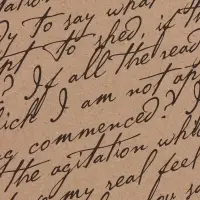 to say what
dy to shed, if th
pt ? If all the read
hich I am not ap
ng commenced? I
the agitation whi
my real feel